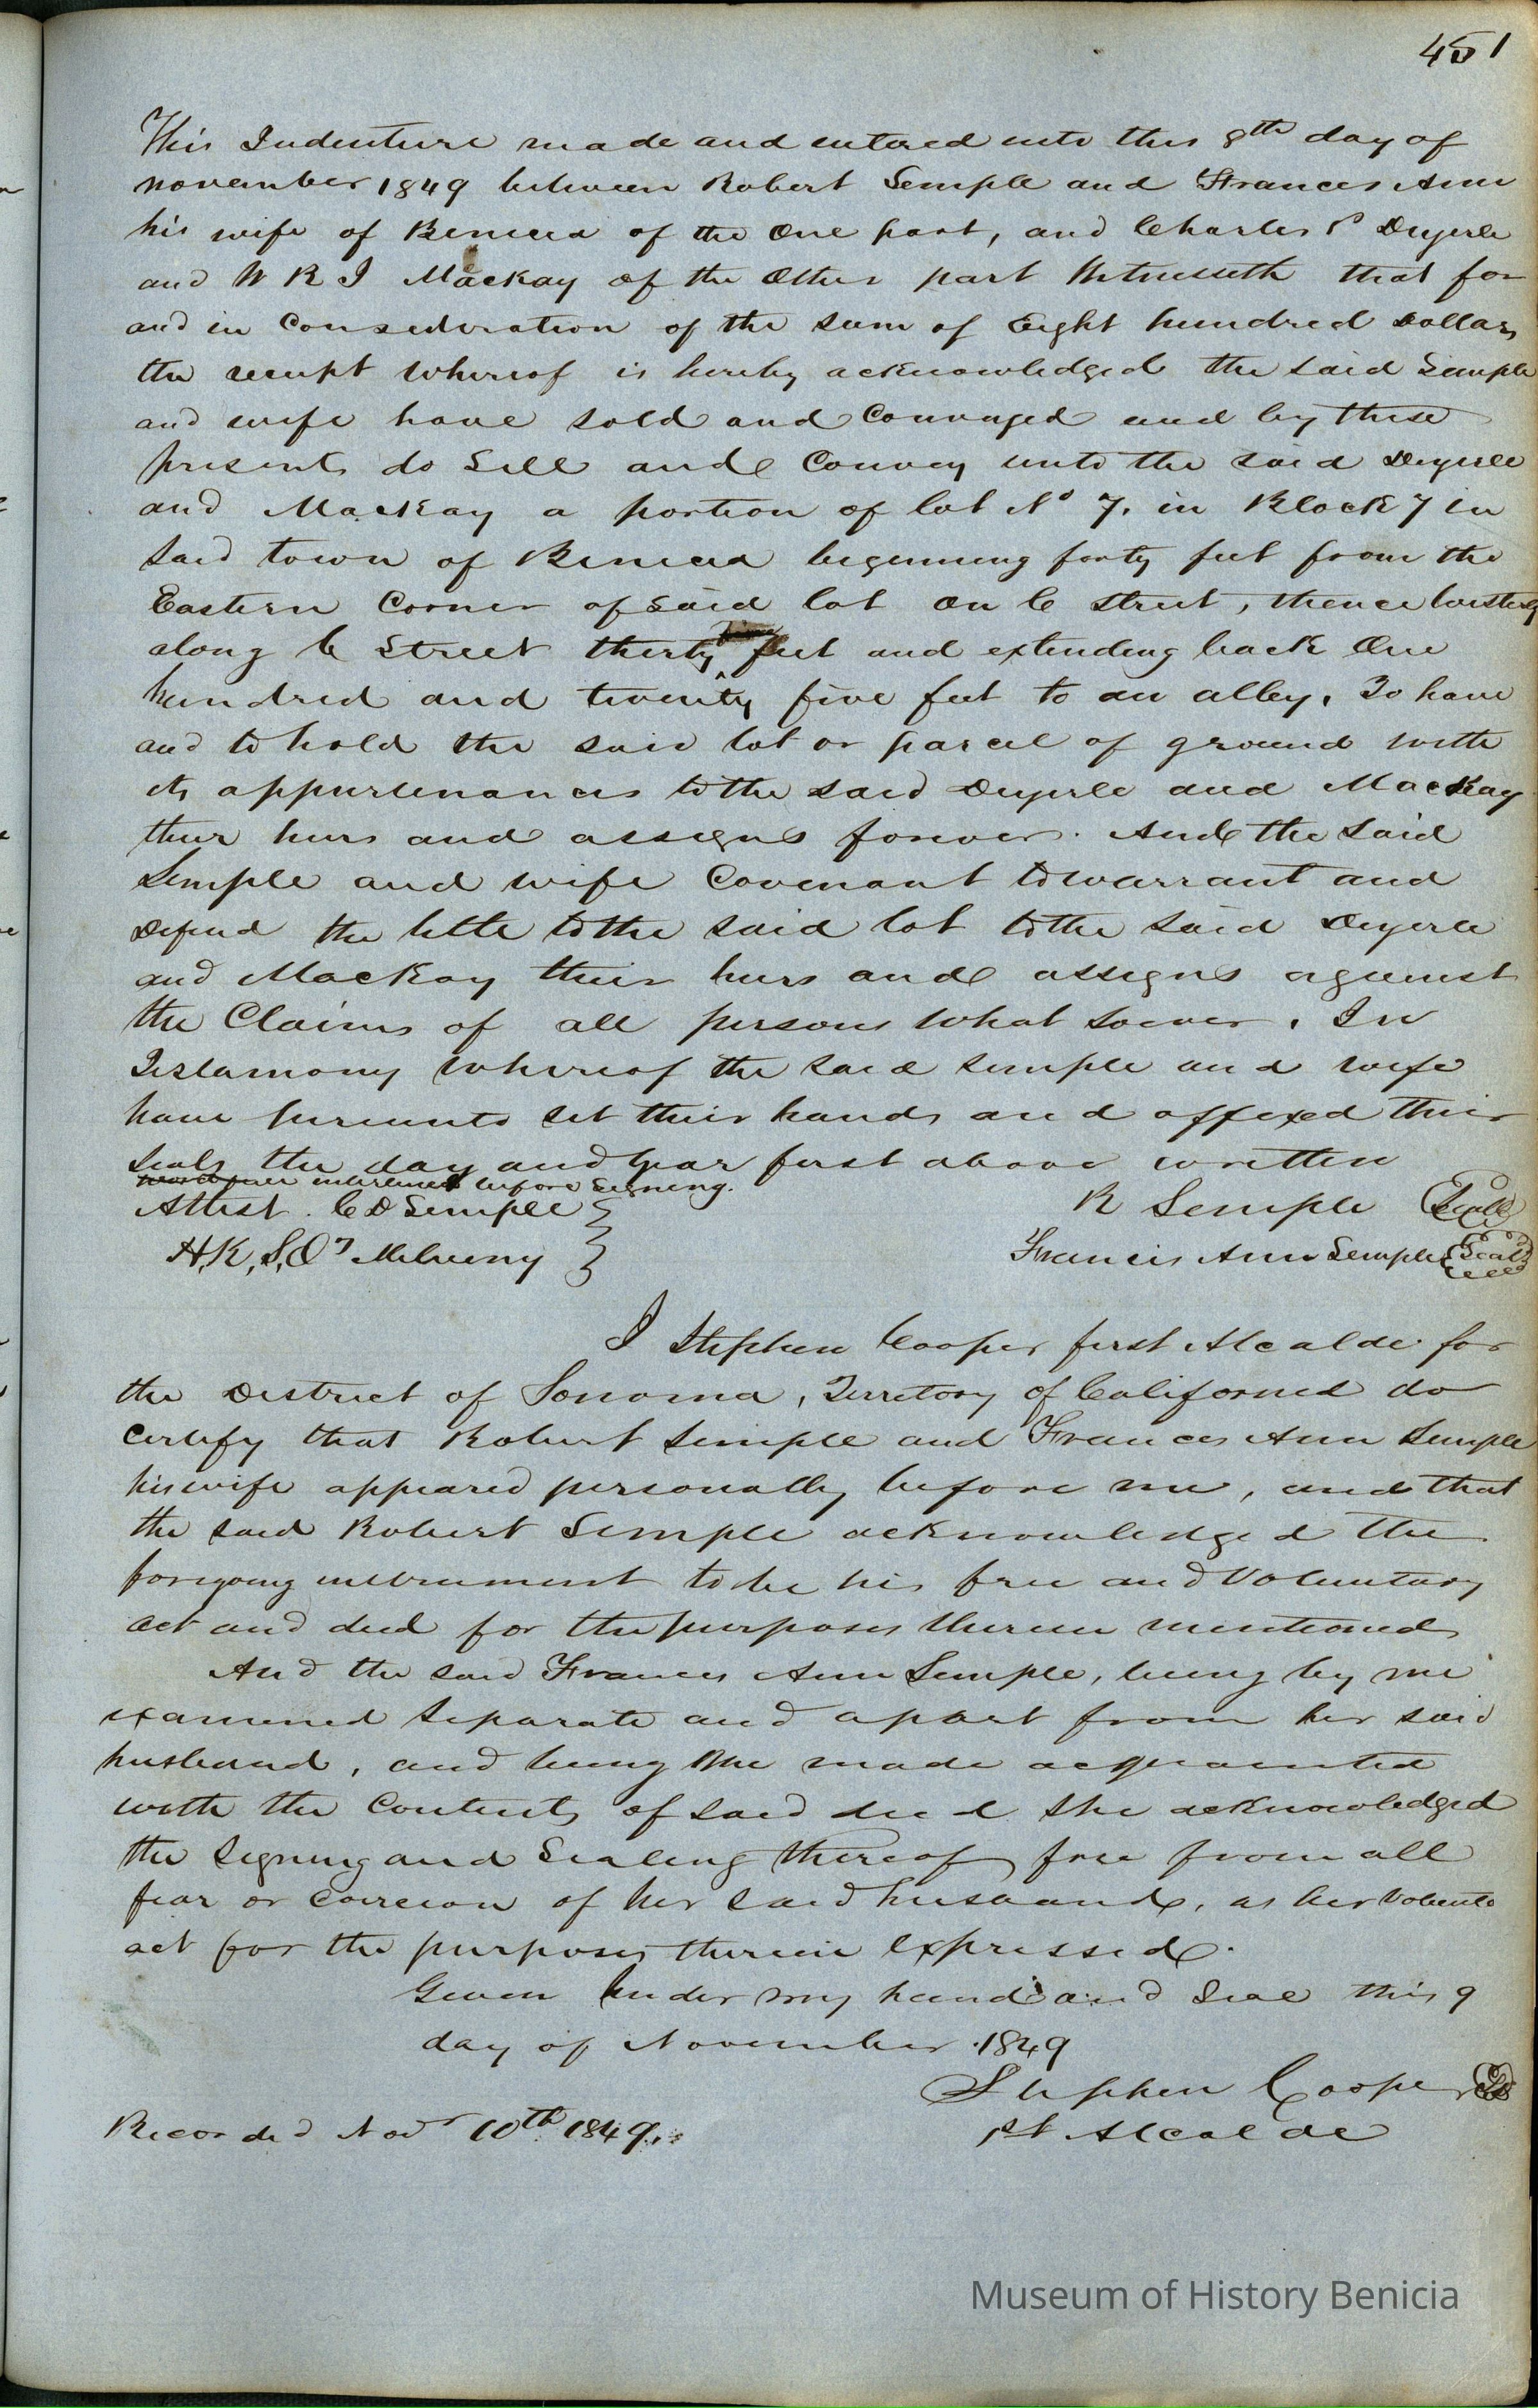 451
This Indenture made and entered into this 8th day of
november 1849 between Robert Semple and Frances Ann
his wife of Benicia of the One part, and Charles P Deyerle
and W R I Mackay of the Other part Witnesseth that for
and in Consideration of the sum of Eight hundred Dollars
the receipt whereof is hereby acknowledged the said Semple
and wife have sold and Conveyed and by these
presents do Sell and Convey unto the said Deyerle
and MacKay a portion of lot No 7. in Block 7 in
Said town of Benicia beginning forty feet from the
Eastern Corner of said lot on C Street, thence Westerly
along C Street thirty feet and extending back One
hundred and twenty five feet to an alley. To have
and to hold the said lot or parcel of ground with
its appurtenances to the said Deyerle and MacKay
their heirs and assigns forever. And the Said
Semple and wife Covenant to warrant and
Defend the title to the said lot to the said Deyerle
and MacKay their heirs and assigns against
the Claims of all persons what soever. In
Testamony whereof the said Semple and wife
have hereunto set their hands and affixed their
seals the day and year first above written
interlined before Signing.
Attest. C D Semple
R Semple Seal
H, K, S, O,
Francis Ann Semple Seal
I Stephen Cooper first Alcalde for
the District of Sonoma, Territory of California do
Certify that Robert Semple and Frances Ann Semple
his wife appeared personally before me, and that
the said Robert Semple acknowledged the
foregoing instrument to be his free and Voluntary
act and deed for the purposes therein mentioned
And the said Frances Ann Semple, being by me
examined Separate and apart from her said
husband, and being made acquainted
with the Contents of said deed she acknowledged
the Signing and Sealing thereof free from all
fear or Coercion of her said husband, as her
act for the purposes therein expressed.
Given Under my hand and Seal this 9
day of November 1849
Stephen Cooper
1st Alcalde
Recorded Novr 10th 1849.
Museum of History Benicia